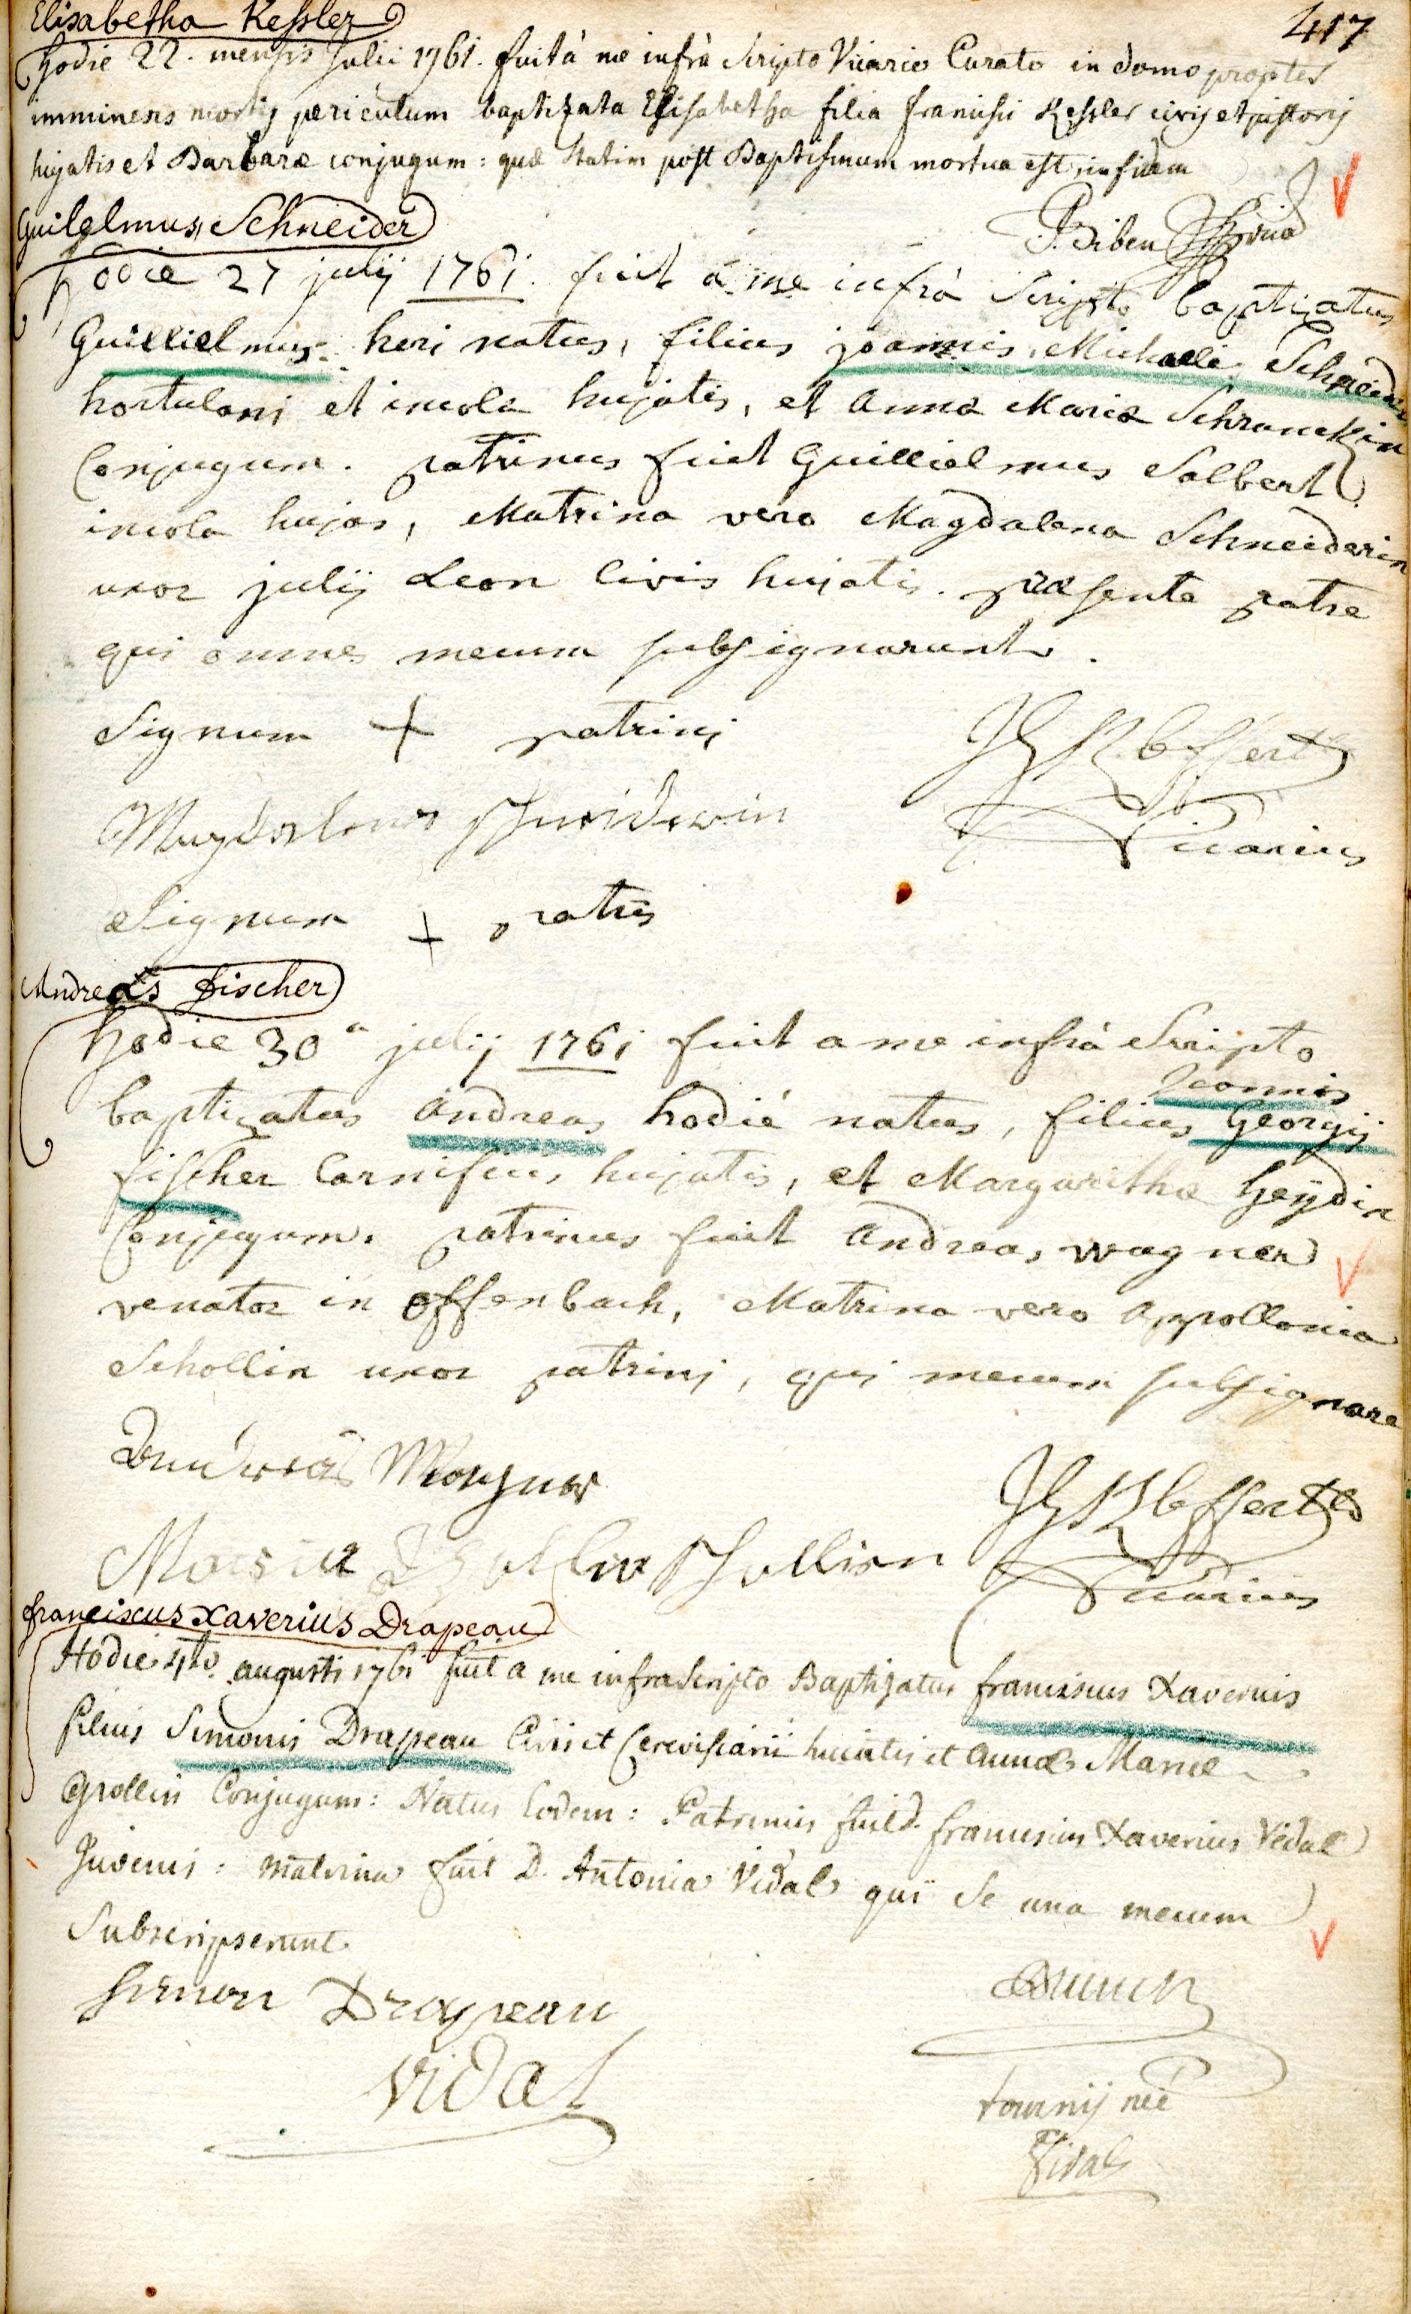 Elisabetha Kessler
417
Hodie 22. mensis Julii 1761. fuit à me infrà scripto Vicario Curato in domo propter
imminens mortis periculum baptizata Elisabetha filia francisci Kessler civis et pistoris
hujatis et Barbaræ conjugum: quæ statim post Baptismum mortua est, in fidem
Guilgelmus Schneider
P. Biben
hodie 27 julij 1761. fuit a me infrà scripto baptizatus
Guillielmus heri natus, filius joannis Michaelis Schneider
hortulani et incolæ hujatis, et Annæ Mariæ Schranckin
Conjugum. patrinus fuit Guillielmus Solbert
incola hujas, Matrina vero Magdalena Schneiderin
uxor julij Leon Civis hujatis. præsente patre
qui omnes mecum subsignarunt.
Signum + patrini
Magdalena Schneiderin
Vicarius
Signum + patris
Andreas fischer
hodie 30a julij 1761 fuit a me infrà scripto
baptizatus Andreas hodié natus, filius Georgij
Joannis
fischer Carnificis hujatis, et Margarithæ heÿdin
Conjugum. patrinus fuit Andreas wagner
venator in offenbach, Matrina vero Appollonia
Schollin uxor patrini, qui mecum subsignare
Andreas Wagner
Maria Schollin
Vicarius
franciscus Xaverius Drapeau
Hodie 4to augusti 1761 fuit a me infrascripto Baptizatus franciscus Xaverius
filius Simonis Drapeau Civis et Cerevisiarii huiatis et Annæ Mariæ
Grollin Conjugum: Natus Eodem: Patrinus fuit d. franciscus Xaverius Vidal
Juvenis: Matrina fuit D. Antonia Vidal qui se una mecum
Subscripserunt
Simon Drapeau
Vidal
tournij neé
Vidal